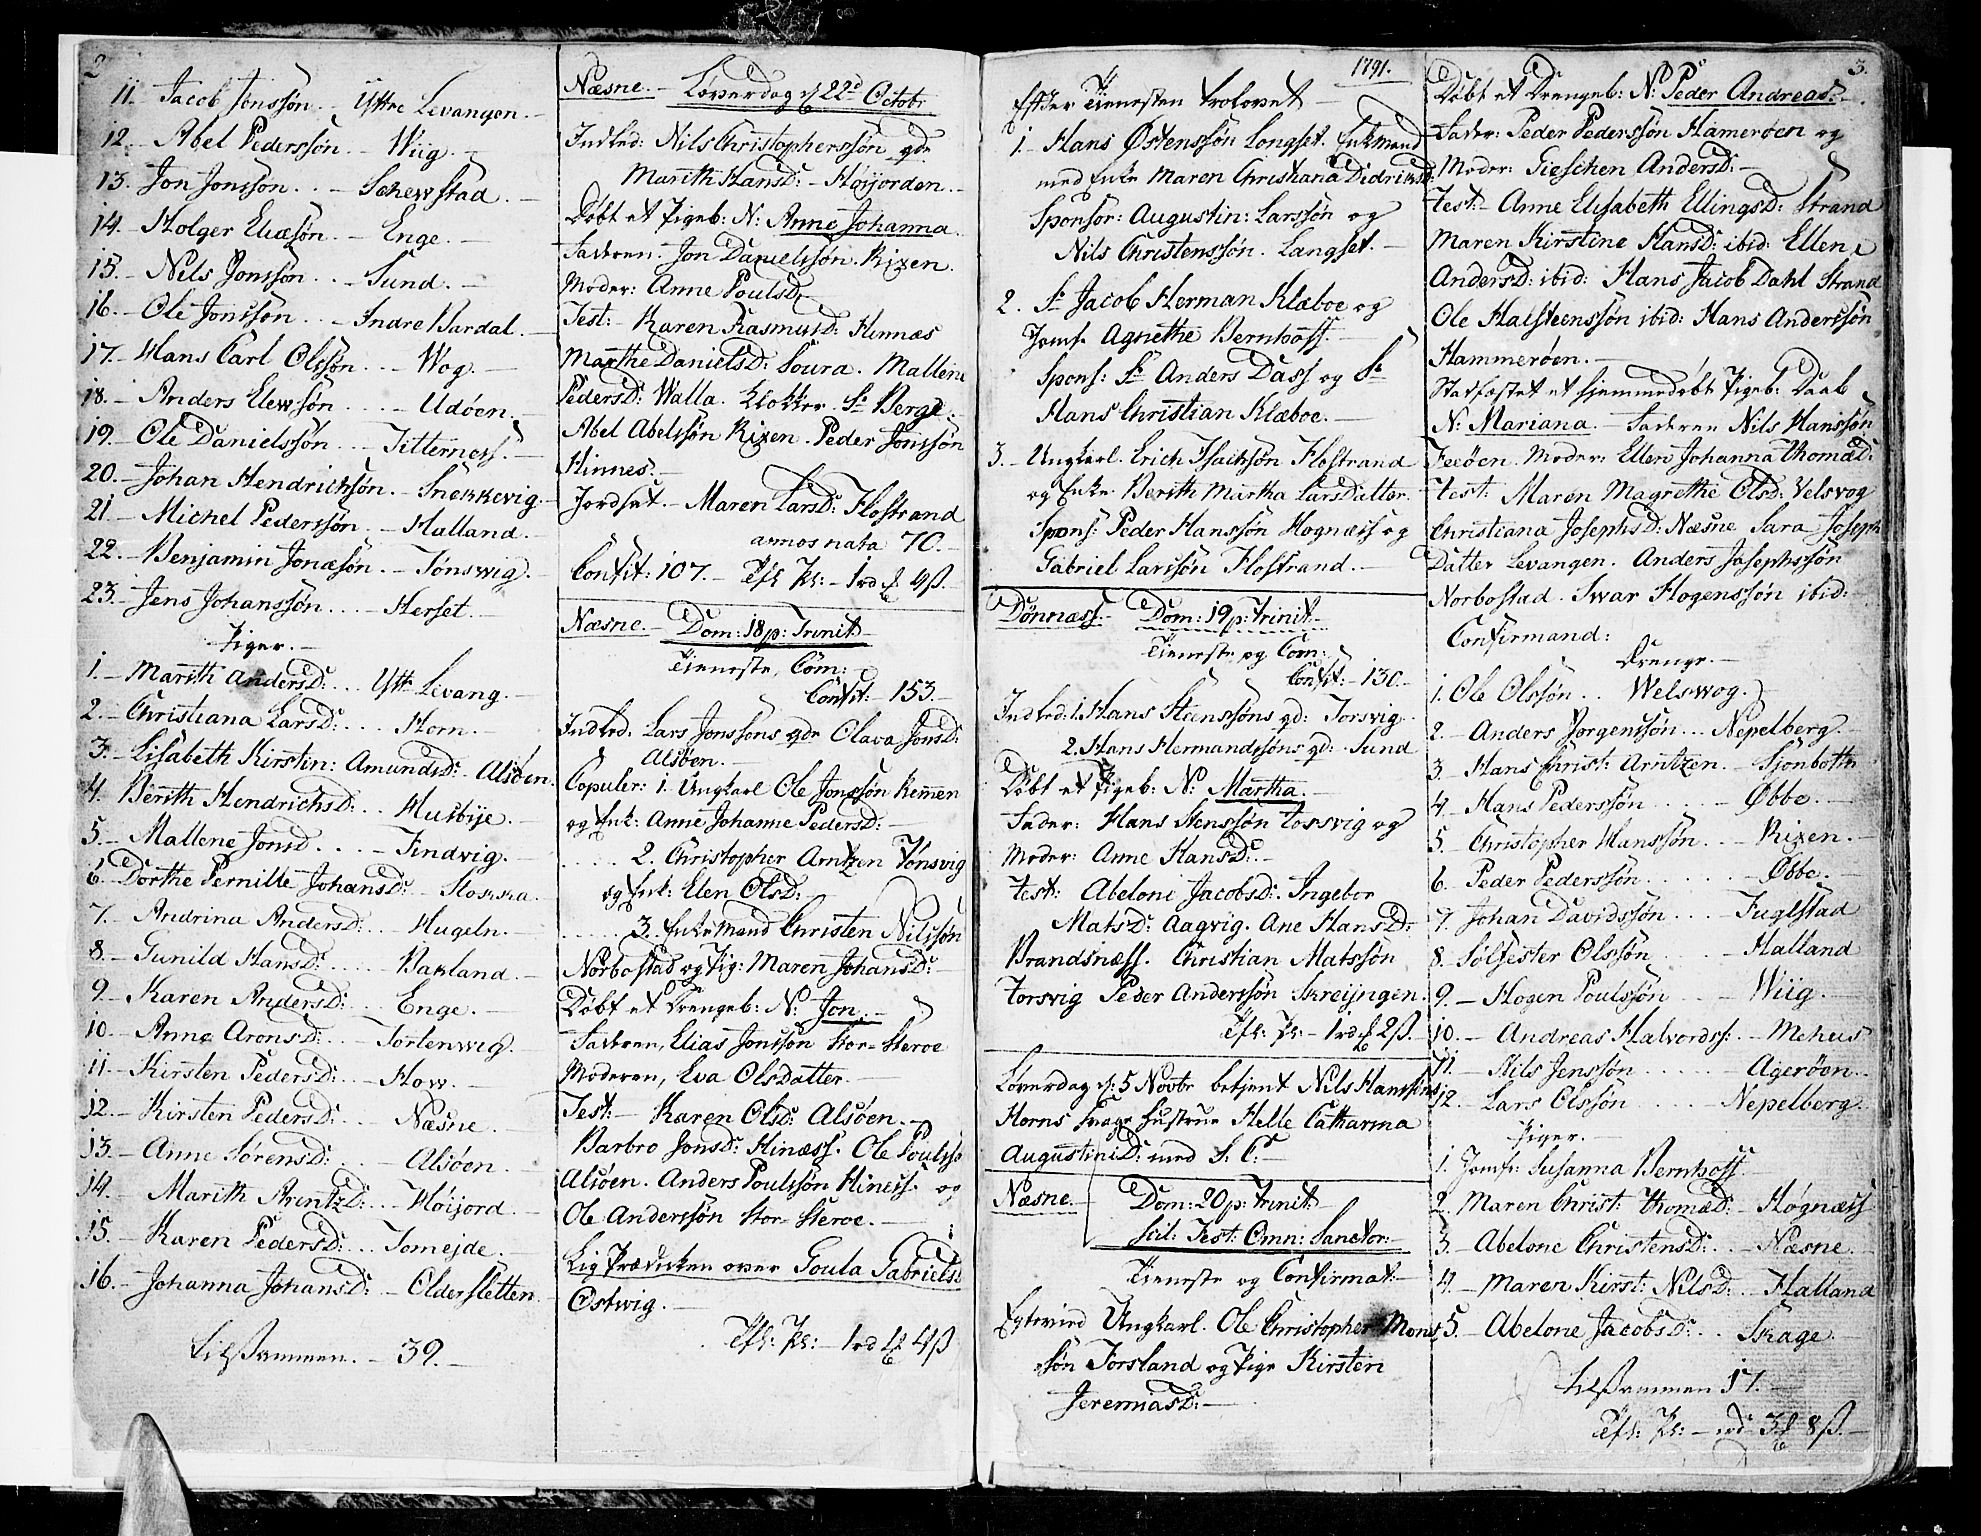 2
11. Jacob Jonssøn .. Yttre Levangen. -
12. - Abel Pederssøn - Wiig. -
13. Jon Jonssøn .. - Schewstad. -
14. - Holger Eliæsøn. - Enge. -
15. - Nils Jonssøn .. - Sund. -
16. - Ole Jonssøn .. - Indre Bardal. -
17. - Hans Carl Olssøn .. - Wog. -
18. - Anders Elewsøn ... - Udøen. -
19. - Ole Danielssøn ... - Titterness. -
20. - Johan Hendrichsøn. - Snekkevig. -
21. - Michel Pederssøn. - Halland. -
22. - Benjamin Jonæsøn. - Tønswig. -
23. - Jens Johanssøn .... - Herset. -
Piger. -
1. - Marith Andersd: ... Ytt: Levang. -
2. - Christiana Larsd: ... Horn. -
3. - Lisabeth Kirstin: Amundsd: - Alsøen.
4. - Berith Hendrichsd: .. - Husbije. -
5. - Mallene Jonsd .... - Findvig. -
6. - Dorthe Pernille Johansd: - Stokka. -
7. - Andrina Andersd: ... Hugeln. -
8. - Gunild Hansd: ..... Bakland. -
9. - Karen Andersd: ... - Enge. -
10. - Anne Aronsd: .. - Tortenwig. -
11. - Kirsten Pedersd: .. - How. -
12. - Kirsten Pedersd: .. - Næsne. -
13. - Anne Sørensd: .... Alsøen. -
14. - Marith Arentzd: ... Høijord. -
15. - Karen Pedersd: ... Tomejde. -
16. - Johanna Johansd: - Oldersletten. -
Tilsammen. - 39. -
Næsne. - Løverdag d. 22d Octobr
Indled: Nils Christopherssøn qde
Marith Hansd: - Høijorden. -
Døbt et Pigeb: N: Anne Johanna.
Faderen. Jon Danielssøn. Rixen.
Moder: Anne Poulsd:
Test: - Karen Rasmusd: Hinnæs
Marthe Danielsd: Soura. Mallene
Pedersd: Walla. Klokker Sr Berge.
Abel Abelssøn Rixen. Peder Jonssøn
Hinnes. -
Jordsat. - Maren Larsd: Flostrand
annos nata 70. -
Confit: 107. - Tfl: Pl: - 1 rd 4ß.
Næsne. - Dom: 18 p: Trinit -
Tieneste, Com:
Confit: - 153. -
Indled: Lars Jonssøns qde Olava Jonsd:
Alsøen. -
Copuler: 1. Ungkarl Ole Jonssøn Remen
og Enk: Anne Johanne Pedersd: -
.... 2. Christopher Arntzen Tønsvig
og Enk: Elen Olsd: -
..... 3. Enkemand Christen Nilssøn
Norbostad og Pig: Maren Johansd:
Døbt et Drengeb: N: Jon. -
Faderen, Elias Jonssøn Stor-Sleroe
Moderen, Eva Olsdatter. -
Test: - Karen Olsd: Alsøen. -
Barbro Jonsd: Hinæss. Ole Poulssø
Alsøen. Anders Poulssøn Hiness. og
Ole Anderssøn Stor-Steroe. -
Lig Prædicken over Goula Gabrielsd
Østwig. -
Tfl: Pl: - 1 rd 4ß
1791.
Efter Tienesten trolovet -
1. - Hans Østenssøn Longset. Enkemand
med Enke Maren Christiana Didriksd:
Sponsor: Augustin: Larssøn og
Nils Christenssøn. Langset. -
2. Sr Jacob Herman Klæboe og
Jomf. Agnethe Bernhoff. -
Spons: Sr Anders Dass og Sr
Hans Christian Klæboe. -
3. - Ungkarl. Erich Isachsøn Flostrand
og Enke Berith Martha Larsdatter. -
Spons: Peder Hanssøn Hognæss og
Gabriel Larssøn Flostrand. -
Dønnæss. - Dom: 19 p: Trinit -
Tieneste og Com:
Confit: - 130. -
Indled: 1. Hans Stenssøns qd: Torsvig
2. Hans Hermandssøns qd: Sund
Døbt et Pigeb: N: Martha. -
Fader: Hans Stenssøn Torsvig og
Moder: Anne Hansd: -
Test: Abelone Jacobsd: Ingebor
Matsd: Aagvig. Ane Hansd:
Brandsnæss. Christian Matssøn
Torsvig Peder Anderssøn Skreijngen.
Tfl: Pl: - 1 rd 2ß.
Løverdag d: 5 Novbr betjent Nils Hanssøns
Horns svage Hustrue Helle Catharina
Augustinid: med S: C: -
Næsne. - Dom: 20 p: Trinit:
Scil: Fest: Omn: Sanctor: -
Tieneste og Confirmat: -
Egtevied Ungkarl. Ole Christopher Mons
søn Forsland og Pige Kirsten
Jeremiasd: -
3.
Døbt et Drengeb: N: Peder Andreas. -
Fader: Peder Pederssøn Hamerøen og
Moder: Gieschen Andersd: -
Test: - Anne Elisabeth Ellingsd: Strand
Maren Kirstine Hansd: ibid: Ellen
Andersd: ibid: Hans Jacob Dahl Strand
Ole Halsteenssøn ibid: Hans Anderssøn
Hammerøen. -
Stadfæstet et hjemmedøbt Pigeb: Daab
N: Mariana. - Faderen Nils Hanssøn
Feøen. Moder: Ellen Johanna Thomæd:
Test: Maren Magrethe Olsd: Velsvog
Christiana Josephsd: Næsne Sara Joseph
Datter Levangen. Anders Josephssøn
Norbostad. Iwar Hogenssøn ibid:
Confirmand:
Drenge. -
1. Ole Olssøn .. Welswog.
2. - Anders Jørgenssøn ... Nepelberg. -
3. - Hans Christ: Arntzen. - Sjonbotn
4. - Hans Pederssøn .... - Øbbe. -
5. Christopher Hanssøn ... - Rixen. -
6. Peder Pederssøn ..... - Øbbe. -
7. Johan Davidssøn .... - Fuglstad
8. Solfester Olssøn .... - Halland
9. - Hogen Poulssøn ... - Wiig. -
10. - Andreas Halvordss: . - Mehus
11. - Nils Jenssøn ..... Agerøen. -
12. - Lars Olssøn .... - Nepelberg.
Piger. -
1. Jomfr: Susanna Bernhoff
2. Maren Christ: Thomæd: - Høgnæss
3. - Abelone Christensd: .. - Næsne. -
4. - Maren Kirst: Nilsd: .. Halland
5. - Abelone Jacobsd: .. Skage. -
Tilsammen 17. -
Tfl: Pl: - rd 3 8ß. -